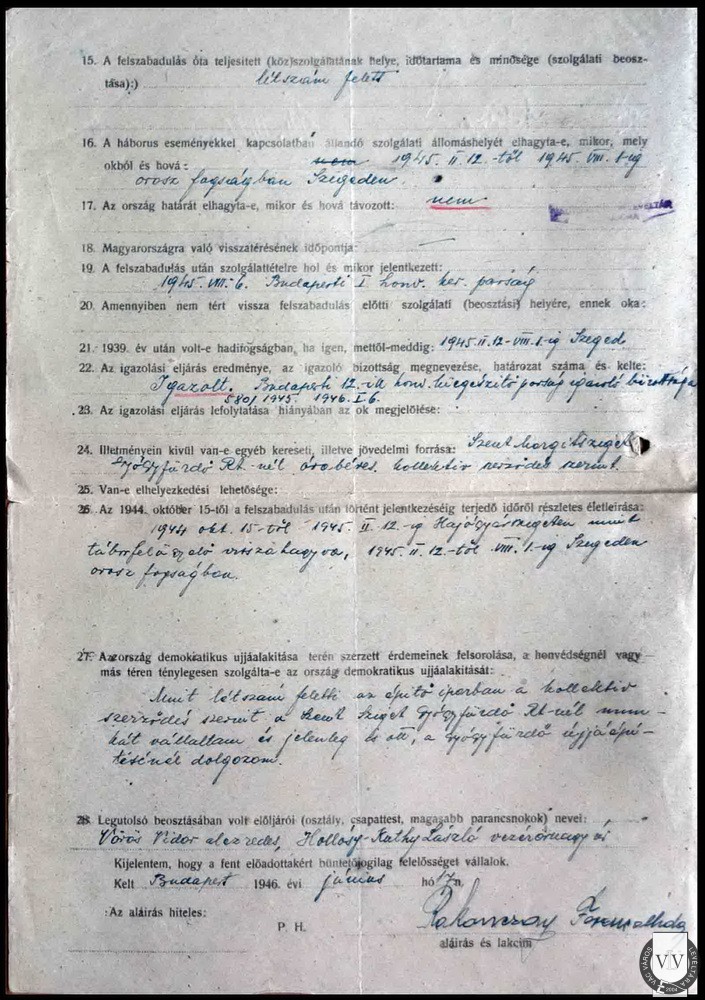 15. A felszabadulás óta teljesített (köz)szolgálatának helye, időtartama és minősége (szolgálati beosz-
tása):) létszám felett
16. A háborus eseményekkel kapcsolatban állandó szolgálati állomáshelyét elhagyta-e, mikor, mely
okból és hová: 1945. II. 12.-től 1945. VIII. 1-ig
orosz fogságban Szegeden.
17. Az ország határát elhagyta-e, mikor és hová távozott: nem
18. Magyarországra való visszatérésének időpontja: —
19. A felszabadulás után szolgálattételre hol és mikor jelentkezett:
1945. VIII. 6. Budapesti I. honv. ker. parság
20. Amennyiben nem tért vissza felszabadulás előtti szolgálati (beosztási) helyére, ennek oka:
21. 1939. év után volt-e hadifogságban, ha igen, mettől-meddig: 1945. II. 12-VIII. 1-ig Szeged
22. Az igazolási eljárás eredménye, az igazoló bizottság megnevezése, határozat száma és kelte:
Igazolt. Budapesti 12. honv. kiegészítő parság igazoló bizottsága
580/1945. 1946. I. 6.
23. Az igazolási eljárás lefolytatása hiányában az ok megjelölése:
24. Illetményein kivül van-e egyéb kereseti, illetve jövedelmi forrása: Szent Margitsziget
Gyógyfürdő Rt.-nél órabéres, kollektiv szerződés szerint.
25. Van-e elhelyezkedési lehetősége:
26. Az 1944. október 15-től a felszabadulás után történt jelentkezéséig terjedő időről részletes életleírása:
1944 okt. 15-től 1945. II. 12.-ig Hajógyárszigeten mint
táborfelügyelő visszahagyva, 1945. II. 12.-től VIII. 1.-ig Szegeden
orosz fogságban.
27. Az ország demokratikus ujjáalakitása terén szerzett érdemeinek felsorolása, a honvédségnél vagy
más téren ténylegesen szolgálta-e az ország demokratikus ujjáalakitását:
Mint létszám feletti az építő iparban a kollektiv
szerződés szerint a Szent Sziget Gyógyfürdő Rt-nél mun-
kát vállaltam és jelenleg is ott, a Gyógyfürdő ujjáépí-
tésénél dolgozom.
28. Legutolsó beosztásában volt elöljárói (osztály, csapattest, magasabb parancsnokok) nevei:
Vörös Vidor alezredes, Hollósy-Kuthy László vezérőrnagy
Kijelentem, hogy a fent előadottakért büntetőjogilag felelősséget vállalok.
Kelt Budapest 1946. évi június hó 17n.
Az aláírás hiteles:
P. H.
aláírás és lakcím
VÁC VÁROS LEVÉLTÁRA